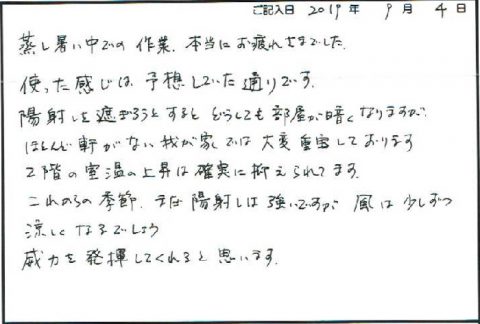 ご記入日 2019年 9月 4日
蒸し暑い中での作業、本当にお疲れさまでした。
使った感じは、予想していた通りです。
陽射しを遮ぎろうとすると どうしても部屋が暗くなりますが、
ほとんど軒がない我が家では大変重宝しております
2階の室温の上昇は確実に抑えられてます。
これからの季節、まだ陽射しは強いですが 風は少しずつ
涼しくなるでしょう
威力を発揮してくれると思います。